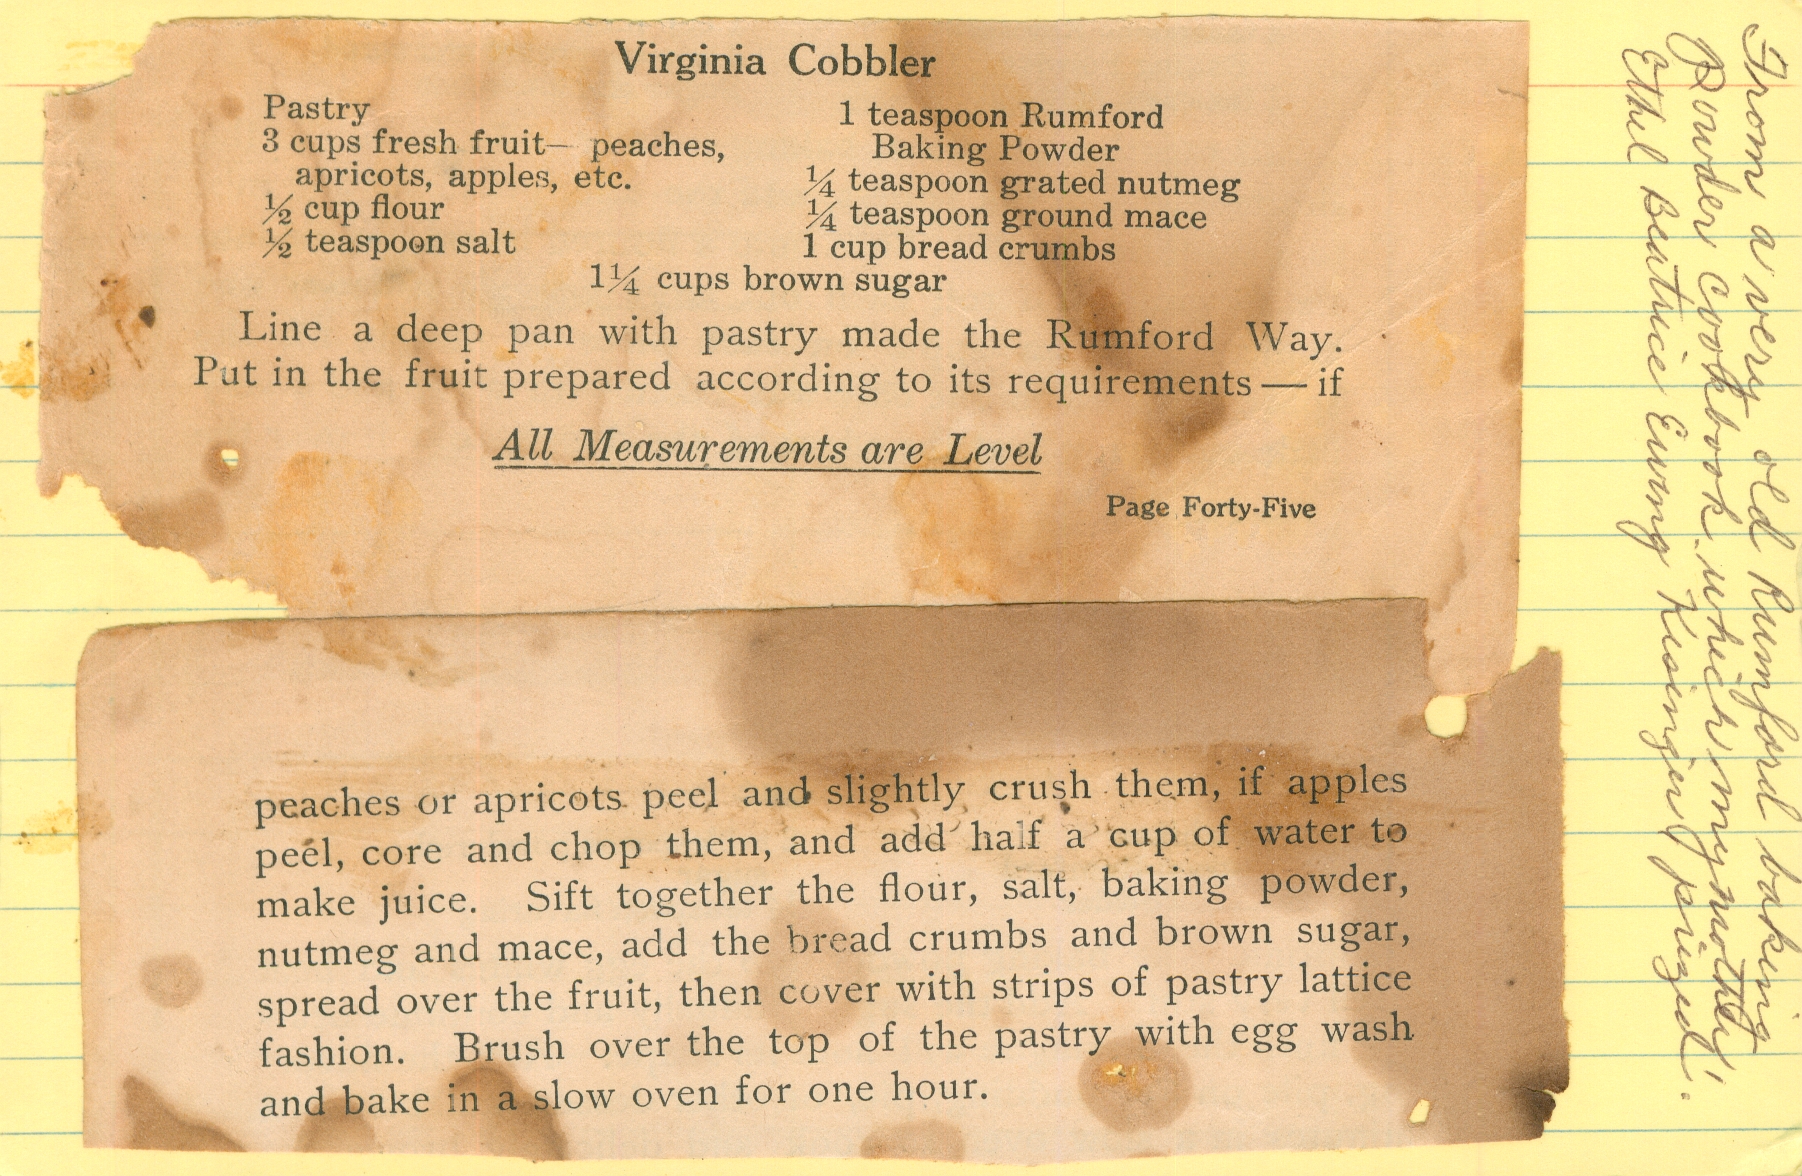 Virginia Cobbler
Pastry
3 cups fresh fruit— peaches,
apricots, apples, etc.
½ cup flour
½ teaspoon salt
1 teaspoon Rumford
Baking Powder
¼ teaspoon grated nutmeg
¼ teaspoon ground mace
1 cup bread crumbs
1¼ cups brown sugar
Line a deep pan with pastry made the Rumford Way.
Put in the fruit prepared according to its requirements — if
All Measurements are Level
Page Forty-Five
peaches or apricots peel and slightly crush them, if apples
peel, core and chop them, and add half a cup of water to
make juice. Sift together the flour, salt, baking powder,
nutmeg and mace, add the bread crumbs and brown sugar,
spread over the fruit, then cover with strips of pastry lattice
fashion. Brush over the top of the pastry with egg wash
and bake in a slow oven for one hour.
From a very old Rumford baking
Powder Cookbook which my mother
Ethel Beatrice Ewing Kisinger prized.